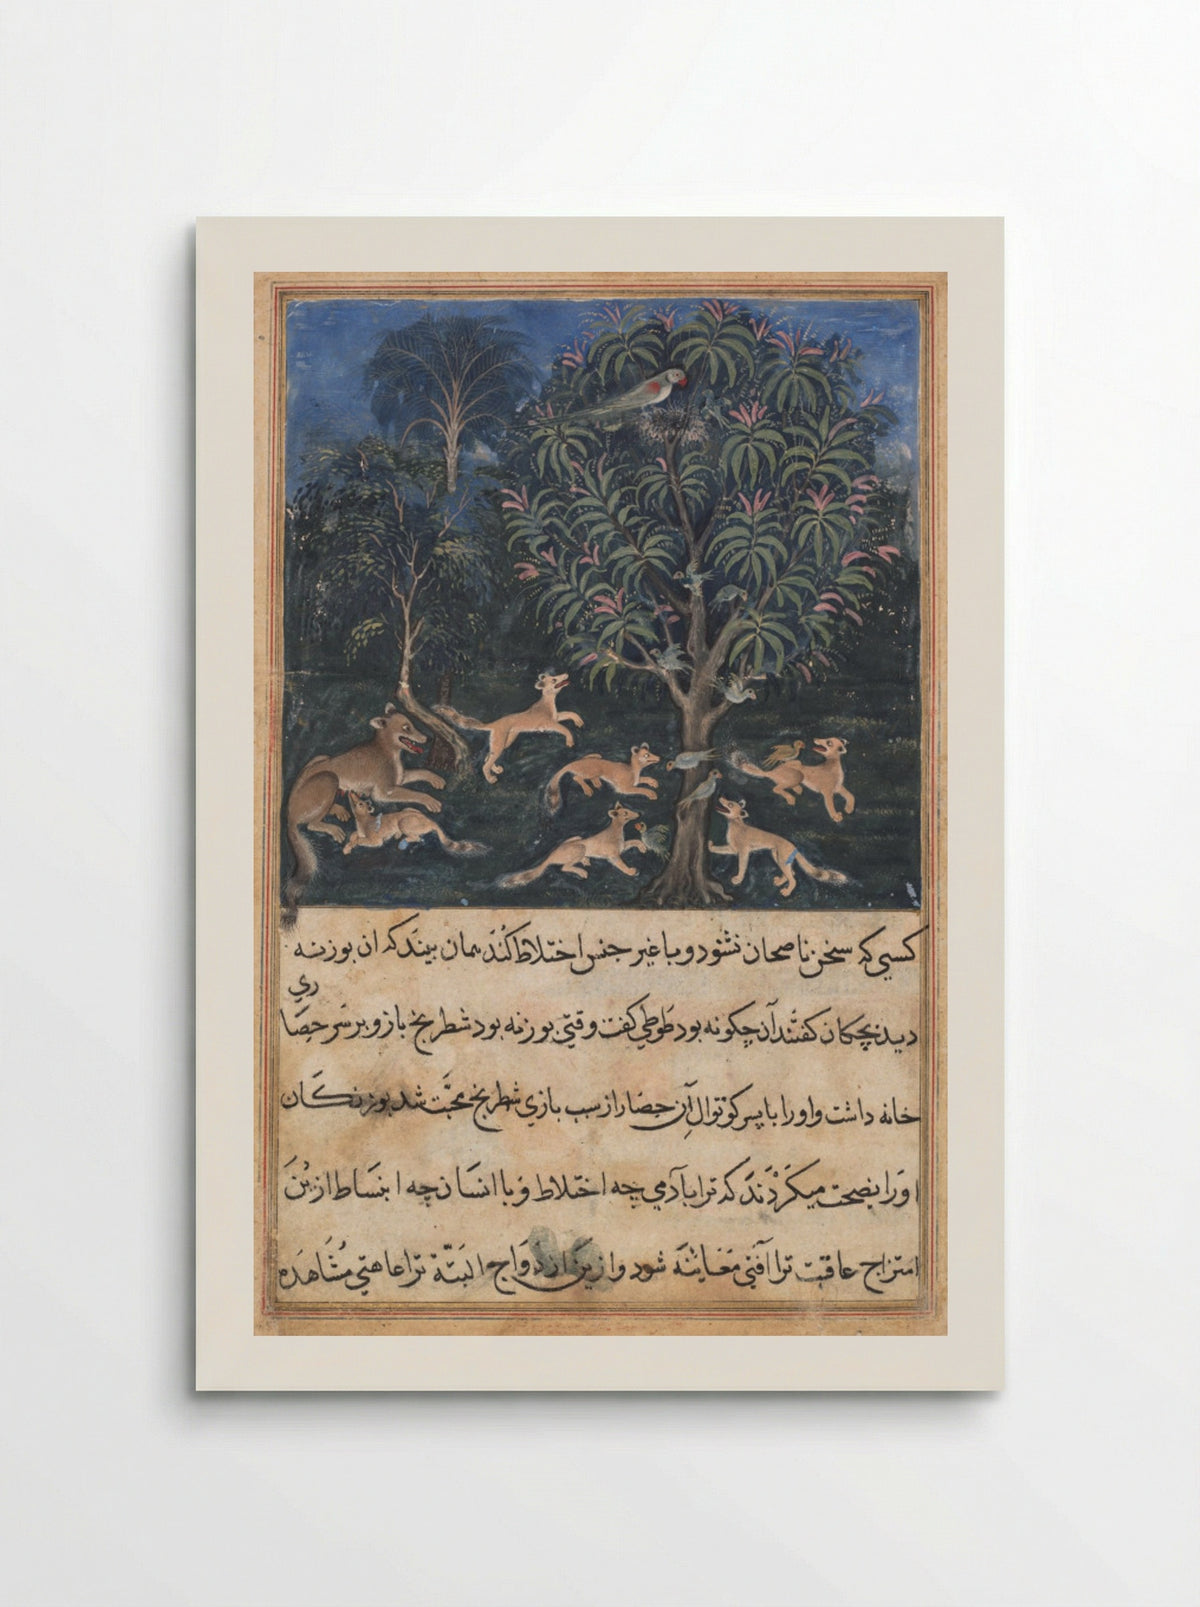 کسی که سخن ناصحان نشنود و با غیر جنس اختلاط کند همان بیند که ان بوزنه
دید بچکان کفتند آن چکونه بود طوطی کفت وقتی بوزنه بود شطرنج باز و بر سر حصاری
خانه داشت و او را با پسر کوتوال آن حصار از سبب بازی شطرنج محبت شد بوزنکان
او را نصیحت میکردند که ترا با آدمی چه اختلاط و با انسان چه انبساط ازین
امتزاج عاقبت ترا آفتی معاینه شود و ازین ازدواج البتة ترا عاهتی مشاهده